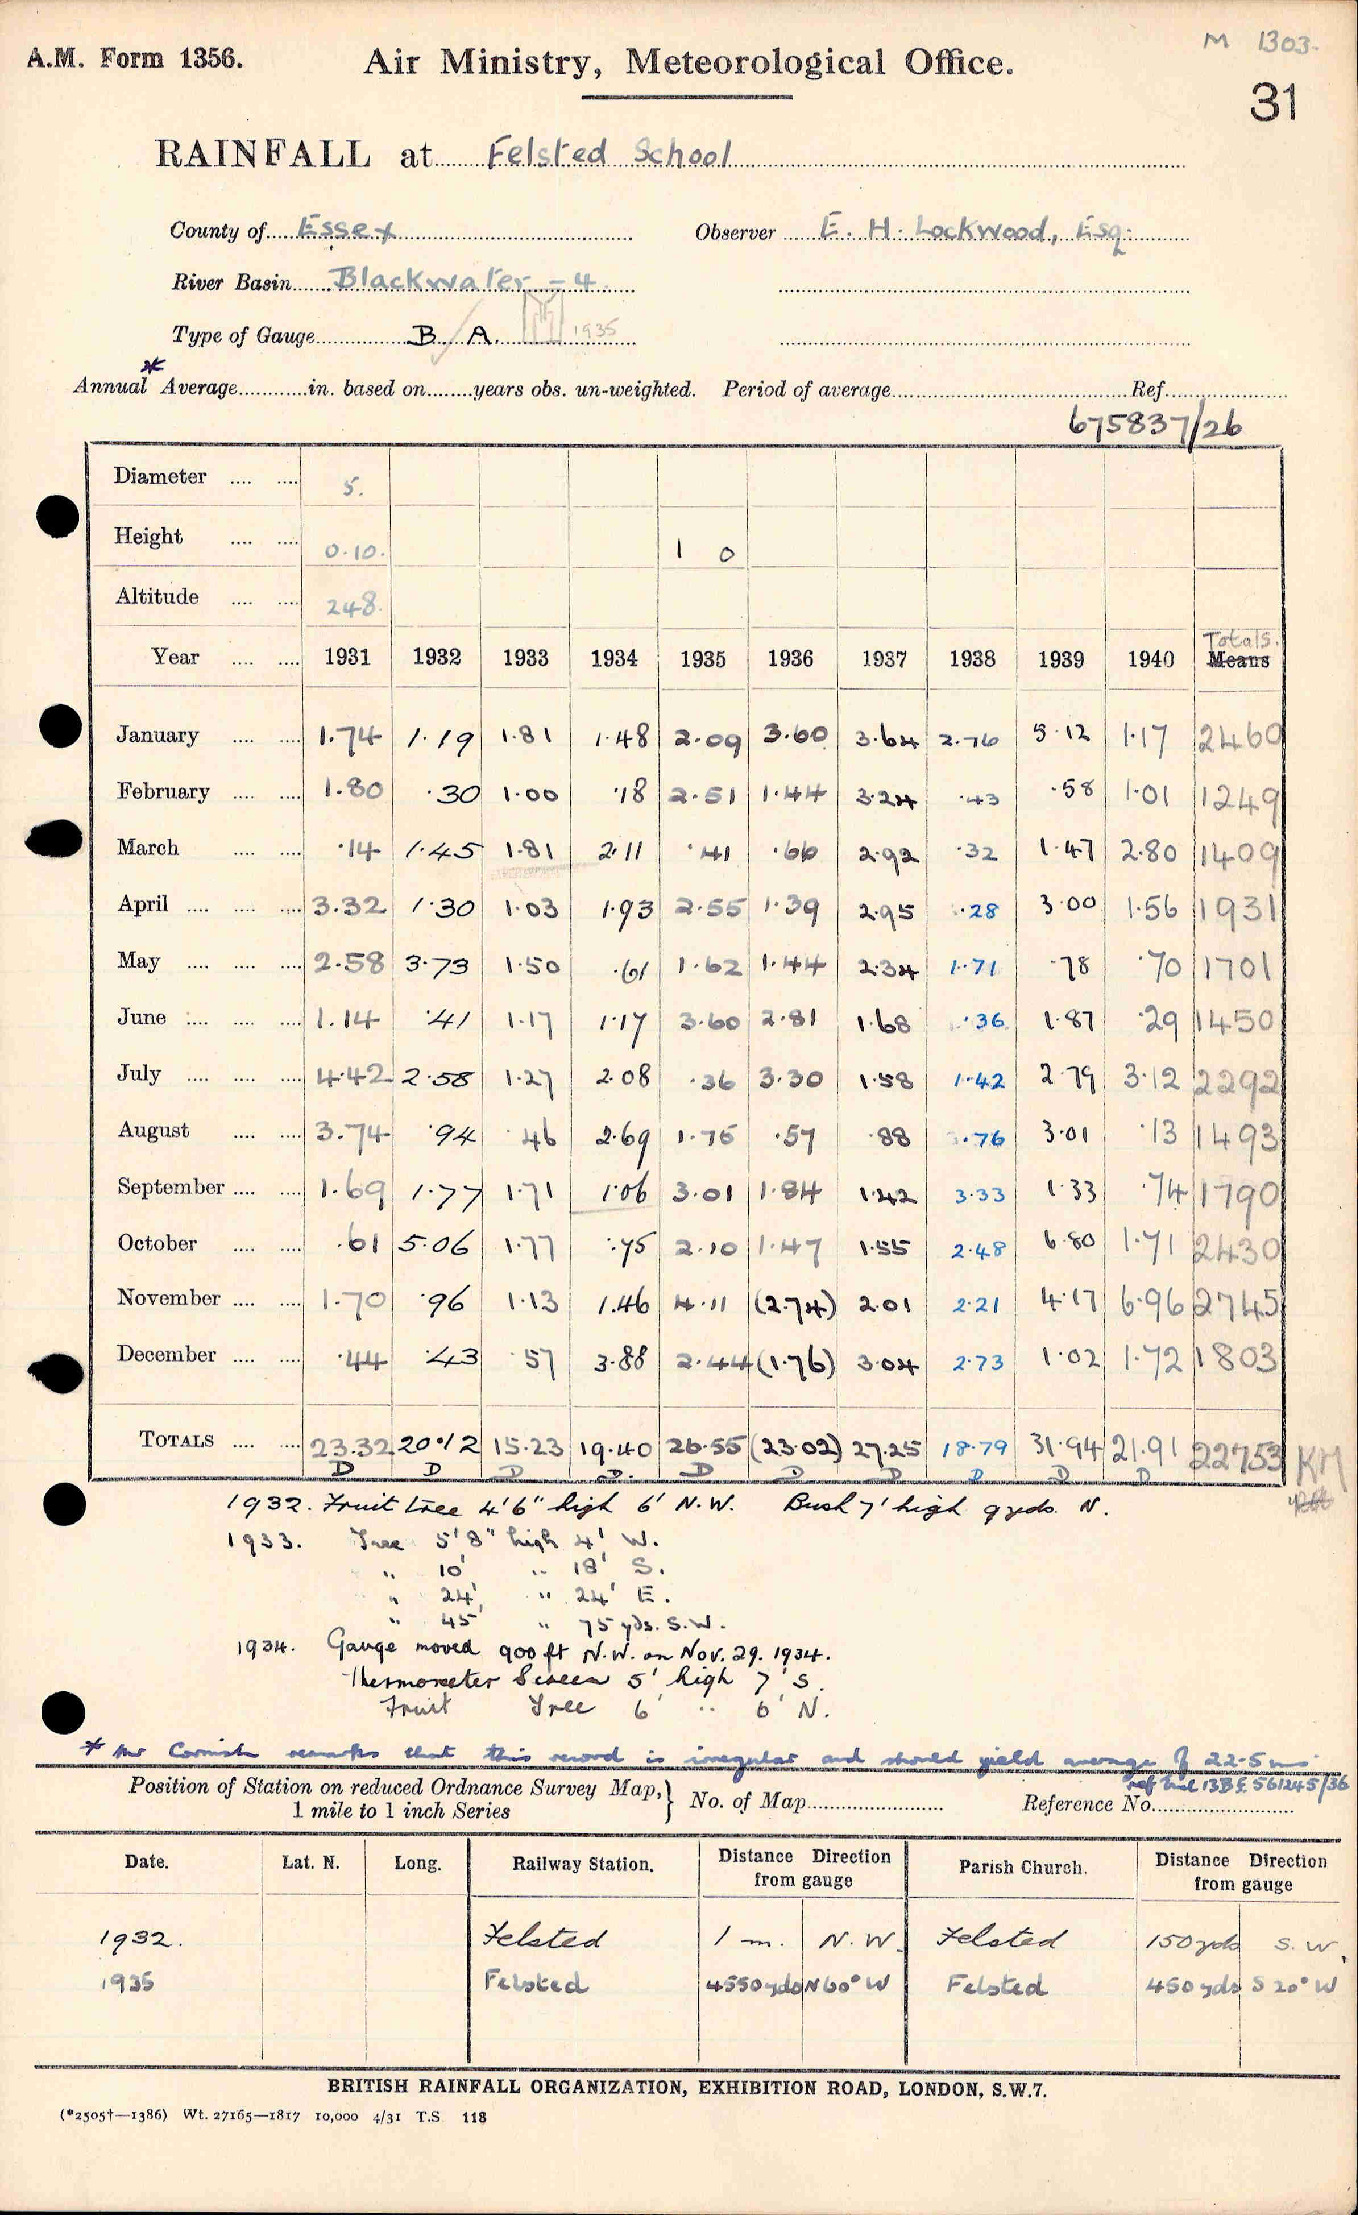 M 1303.
A.M. Form 1356. Air Ministry, Meteorological Office.
31
RAINFALL at Felsted School
County of Essex Observer E. H. Lockwood, Esq.
River Basin Blackwater - 4.
Type of Gauge B A. 1935
Annual * Average in. based on years obs. un-weighted. Period of average Ref.
675837/26
Diameter .... .... 5.
Height .... .... 0.10. 1 0
Altitude .... .... 248.
Totals.
Year .... .... 1931 1932 1933 1934 1935 1936 1937 1938 1939 1940 Means
January .... .... 1.74 1.19 1.81 1.48 2.09 3.60 3.64 2.76 5.12 1.17 2460
February .... .... 1.80 .30 1.00 .18 2.51 1.44 3.24 .43 .58 1.01 1249
March .... .... .14 1.45 1.81 2.11 .41 .66 2.92 .32 1.47 2.80 1409
April .... .... .... 3.32 1.30 1.03 1.93 2.55 1.39 2.95 .28 3.00 1.56 1931
May .... .... .... 2.58 3.73 1.50 .61 1.62 1.44 2.34 1.71 .78 .70 1701
June .... .... .... 1.14 .41 1.17 1.17 3.60 2.81 1.68 .36 1.87 .29 1450
July .... .... .... 4.42 2.58 1.27 2.08 .36 3.30 1.58 1.42 2.79 3.12 2292
August .... .... 3.74 .94 .46 2.69 1.75 .57 .88 .76 3.01 .13 1493
September .... .... 1.69 1.77 1.71 1.06 3.01 1.84 1.42 3.33 1.33 .74 1790
October .... .... .61 5.06 1.77 .75 2.10 1.47 1.55 2.48 6.80 1.71 2430
November .... .... 1.70 .96 1.13 1.46 4.11 (2.74) 2.01 2.21 4.17 6.96 2745
December .... .... .44 .43 .57 3.88 2.44 (1.76) 3.04 2.73 1.02 1.72 1803
TOTALS .... .... 23.32 20.12 15.23 19.40 26.55 (23.02) 27.25 18.79 31.94 21.91 22753 KM
D D D D. D D D D D D
1932. Fruit tree 4' 6" high 6' N.W. Bush 7' high 9 yds. N.
1933. Tree 5' 8" high 4' W.
" 10' " 18' S.
" 24' " 24' E.
" 45' " 75 yds. S.W.
1934. Gauge moved 900 ft N.W. on Nov. 29. 1934.
Thermometer Screen 5' high 7' S.
Fruit Tree 6' " 6' N.
* Mr Cornish remarks that this record is irregular and should yield average of 22.5 ins
561245/36
Position of Station on reduced Ordnance Survey Map, } No. of Map Reference No.
1 mile to 1 inch Series
Date. Lat. N. Long. Railway Station. Distance Direction from gauge Parish Church. Distance Direction from gauge
1932. Felsted 1 m. N.W. Felsted 150 yds S.W.
1935 Felsted 4550 yds N60°W Felsted 450 yds S 20° W
BRITISH RAINFALL ORGANIZATION, EXHIBITION ROAD, LONDON, S.W.7.
(*2505†—1386) Wt. 27165—1817 10,000 4/31 T.S. 118